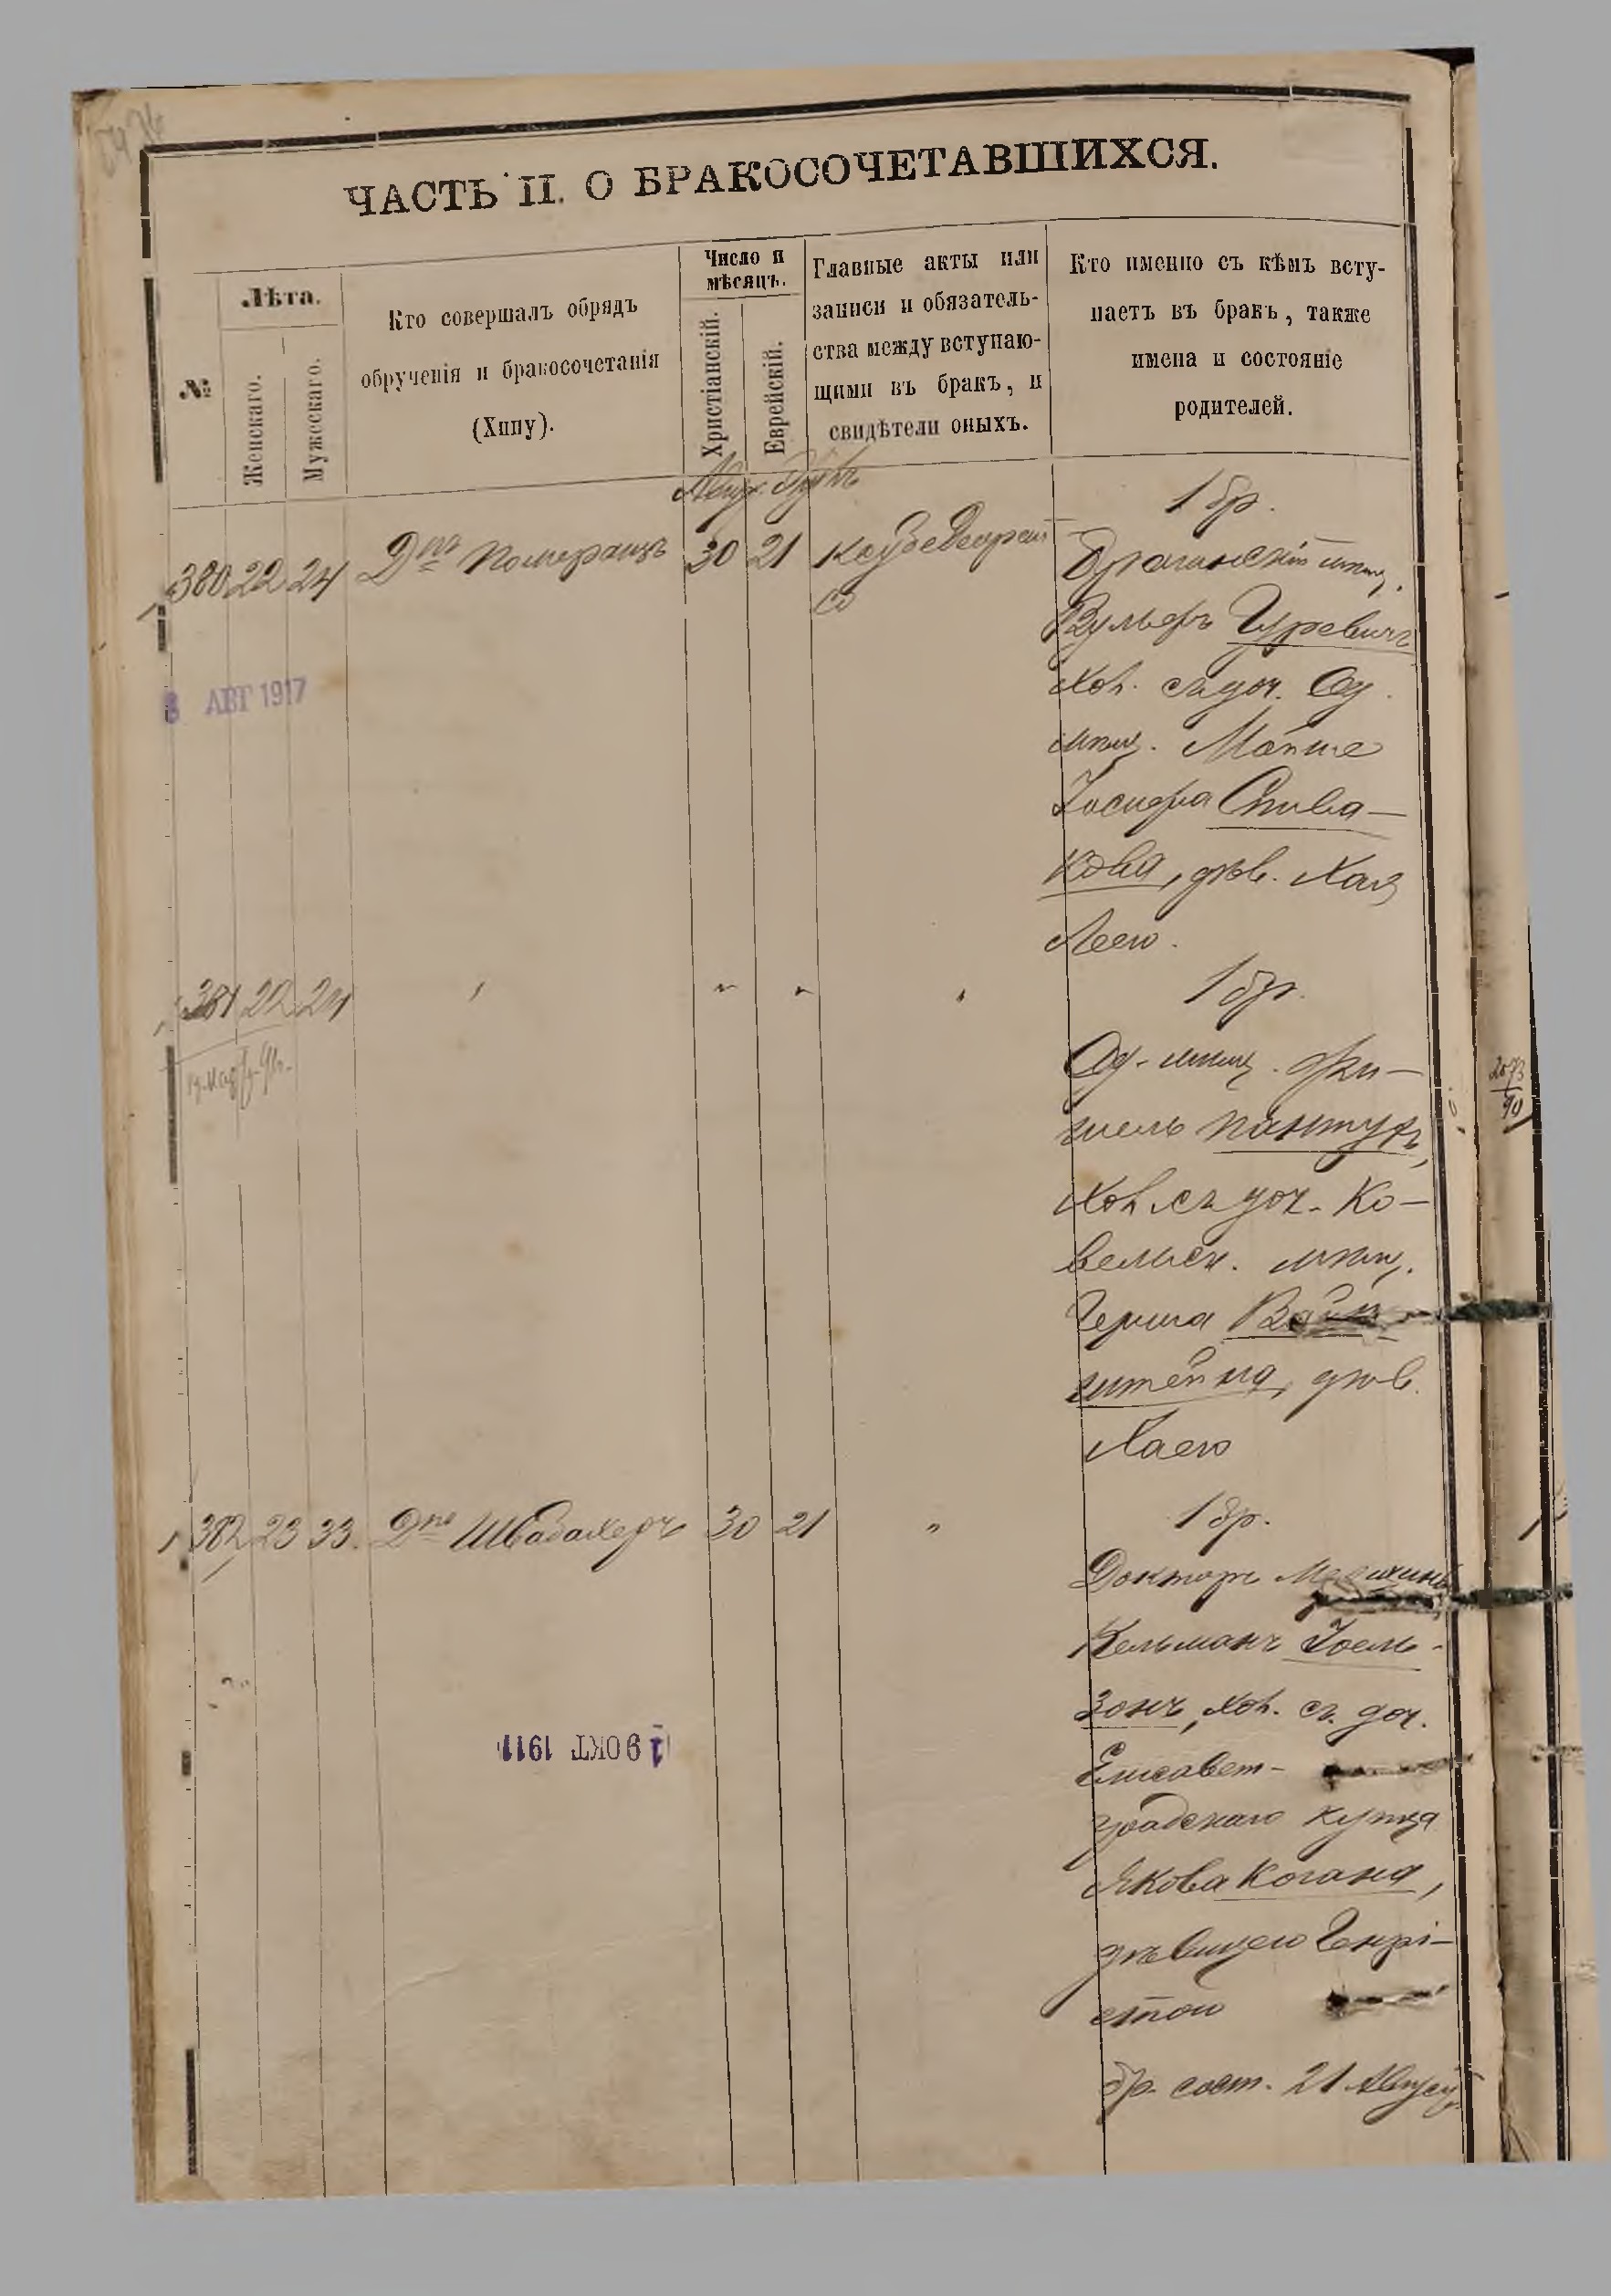 ЧАСТЬ II. О БРАКОСОЧЕТАВШИХСЯ.
№
Лѣта.
Женскаго.
Мужескаго.
Кто совершалъ обрядъ
обрученія и бракосочетанія
(Хупу).
Число и
мѣсяцъ.
Христіанскій.
Еврейскій.
Главные акты или
записи и обязатель-
ства между вступаю-
щими въ бракъ, и
свидѣтели оныхъ.
Кто именно съ кѣмъ всту-
паетъ въ бракъ, также
имена и состояніе
родителей.
380 22 24 Померанцъ 30 21
1 бр.
мѣщ.
Вульфъ Гуревичъ
хол. съ доч. Од.
мѣщ. Мойше
Іосифа Спива-
кова, дѣв. Хая
Леею.
8 АВГ 1917
381 22 24 " " " "
1 бр.
Од. мѣщ. Фи-
шель Пантухъ,
хол. съ доч. Ко-
вельск. мѣщ.
Герша Вайн-
штейна, дѣв.
Хаею
2073
90
382 23 33. Швабахеръ 30 21 "
1 бр.
Докторъ Медицины
Кельманъ Іоель-
зонъ, хол. съ доч.
Елисавет-
градскаго купца
Якова Когана,
дѣвицею Генрі-
етою
бр. сост. 21 Август
19 ОКТ 1911